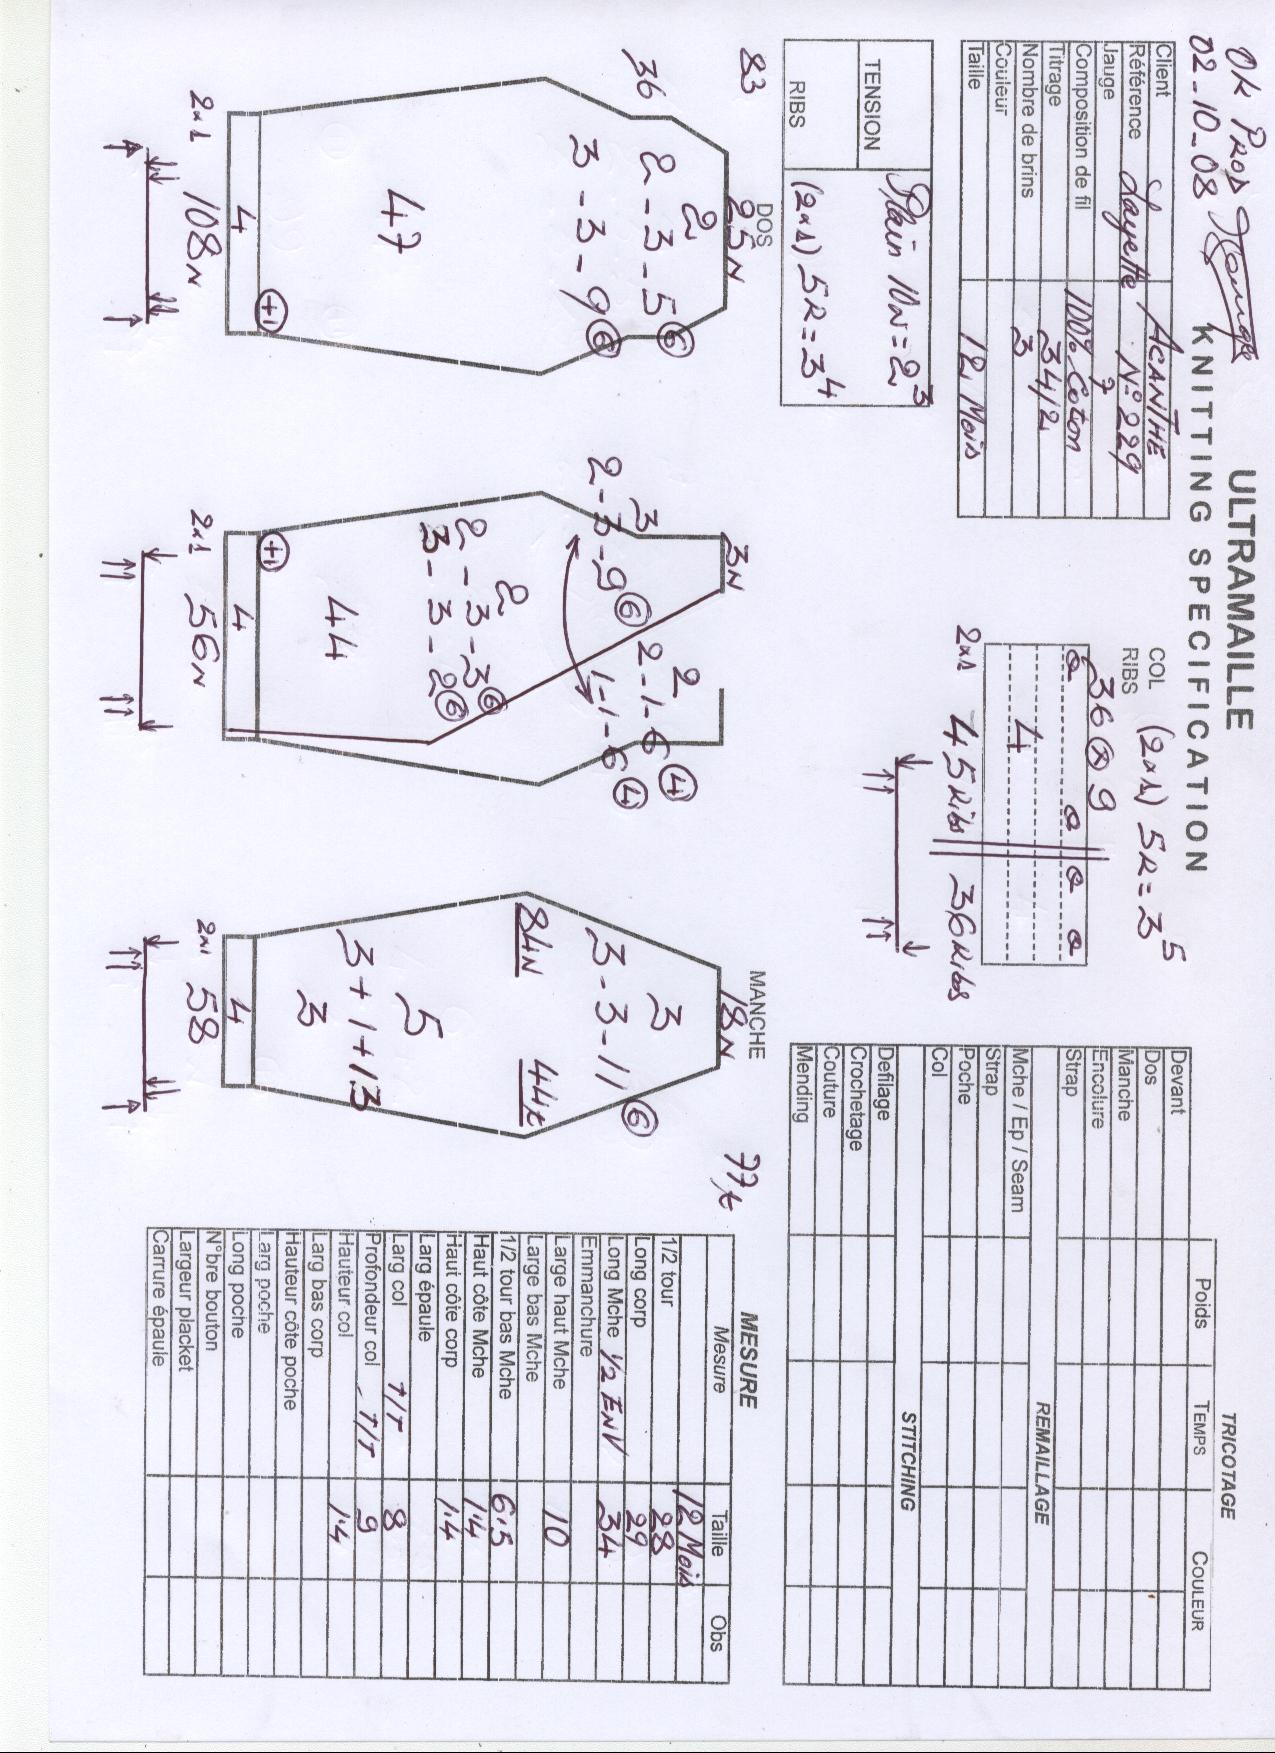 OK PROD
02-10-08
ULTRAMAILLE
KNITTING SPECIFICATION
Client ACANTHE
Référence Layette N° 229
Jauge 7
Composition de fil 100% Coton
Titrage 34/2
Nombre de brins 3
Couleur
Taille 12 Mois
TENSION Plain 10N = 2³
RIBS (2x1) 5R = 3⁴
COL (2x1) 5R = 3⁵
RIBS
36 ⊗ 9
4
2x1 45 Ribs 36 Ribs
TRICOTAGE
Poids TEMPS COULEUR
Devant
Dos
Manche
Encolure
Strap
REMAILLAGE
Mche / Ep / Seam
Strap
Poche
Col
STITCHING
Defilage
Crochetage
Couture
Mending
83
DOS
25N
36
2
2-3-5 ⑥
3-3-9 ⑥
47
+1
4
2x1 108N
3N
2
3
2-1-6 ④
2-3-9 ⑥
1-1-6 ④
2
2-3-3 ⑥
3-3-2 ⑥
44
+1
4
2x1 56N
MANCHE
18N
77t
3
3-3-11 ⑥
84N 44t
5
3+1+13
3
4
2x1 58
MESURE
Mesure Taille Obs
12 Mois
1/2 tour 28
Long corp 29
Long Mche 1/2 ENV 34
Emmanchure
Large haut Mche 10
Large bas Mche
1/2 tour bas Mche 6.5
Haut côte Mche 1.4
Haut côte corp 1.4
Larg épaule
Larg col T/T 8
Profondeur col T/T 9
Hauteur col 1.4
Larg bas corp
Hauteur côte poche
Larg poche
Long poche
N°bre bouton
Largeur placket
Carrure épaule